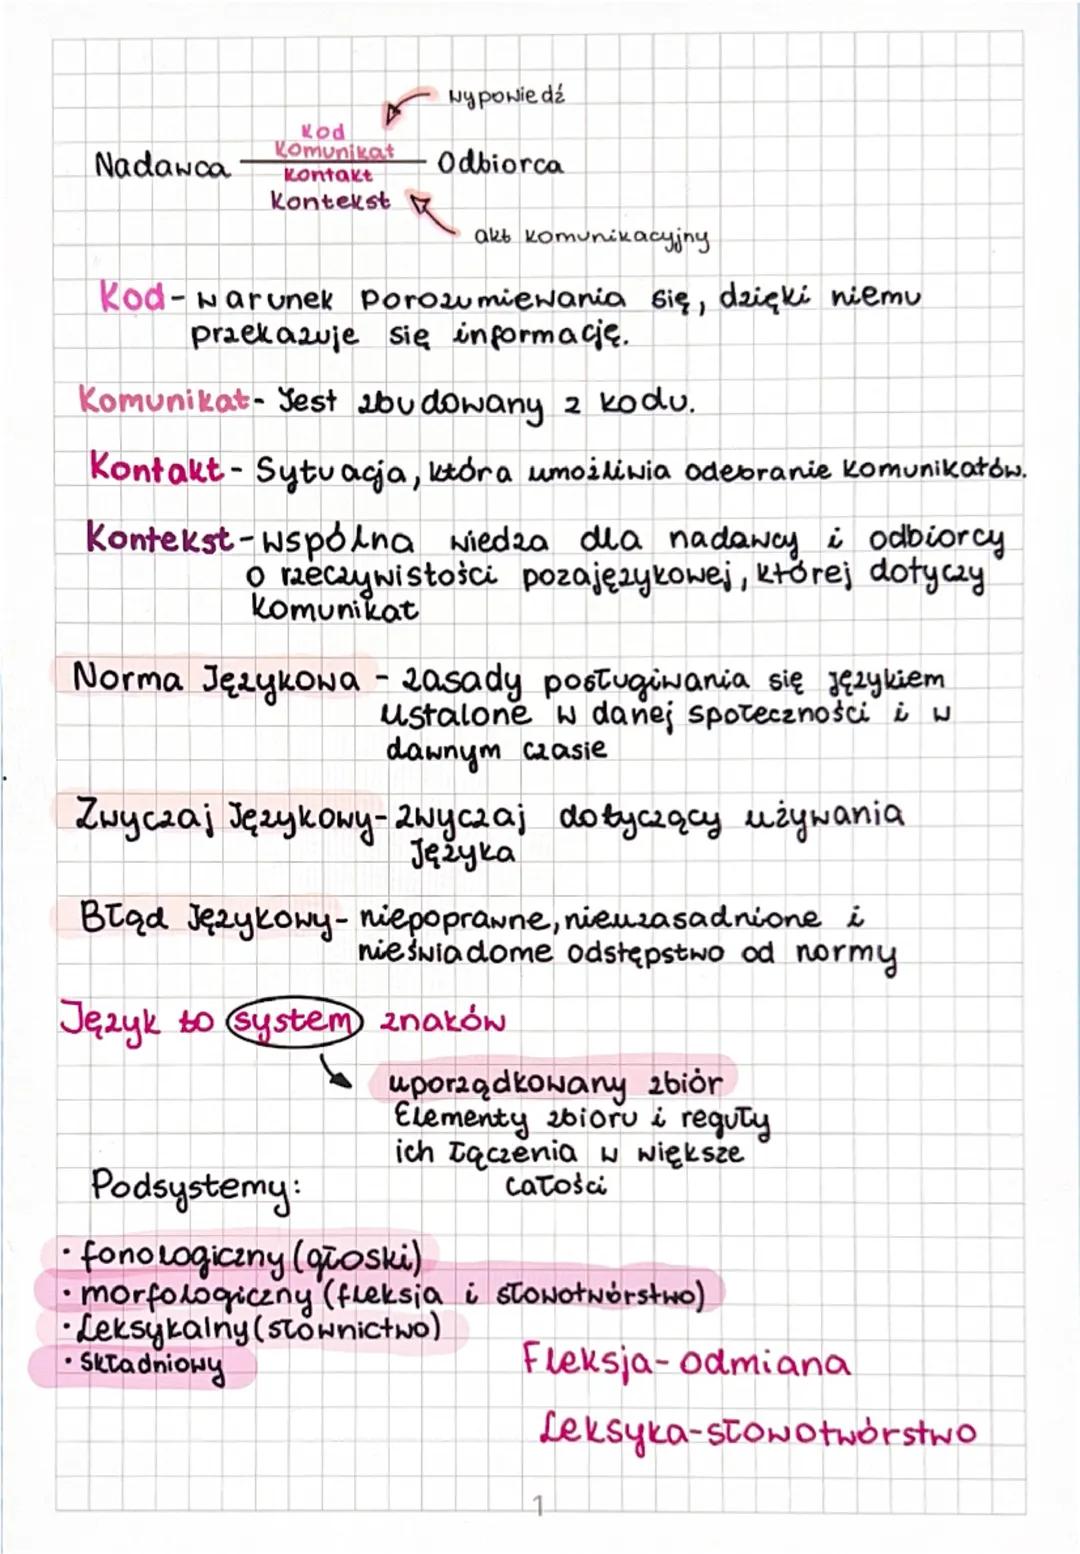 wypowiedź
Kod
Nadawca Komunikat Odbiorca
Kontakt
Kontekst
akt komunikacyjny
Kod - warunek porozumiewania się, dzięki niemu
przekazuje się informację.
Komunikat - Jest zbudowany z kodu.
Kontakt - Sytuacja, która umożliwia odebranie komunikatów.
Kontekst - wspólna wiedza dla nadawcy i odbiorcy
o rzeczywistości pozajęzykowej, której dotyczy
komunikat
Norma Językowa - zasady posługiwania się językiem
ustalone w danej społeczności i w
dawnym czasie
Zwyczaj Językowy - zwyczaj dotyczący używania
Języka
Błąd Językowy - niepoprawne, nieuzasadnione i
nieświadome odstępstwo od normy
Język to system znaków
uporządkowany zbiór
Elementy zbioru i reguły
ich łączenia w większe
całości
Podsystemy:
· fonologiczny (głoski)
· morfologiczny (fleksja i słowotwórstwo)
· Leksykalny (słownictwo)
· Składniowy
Fleksja - odmiana
Leksyka - słowotwórstwo
1